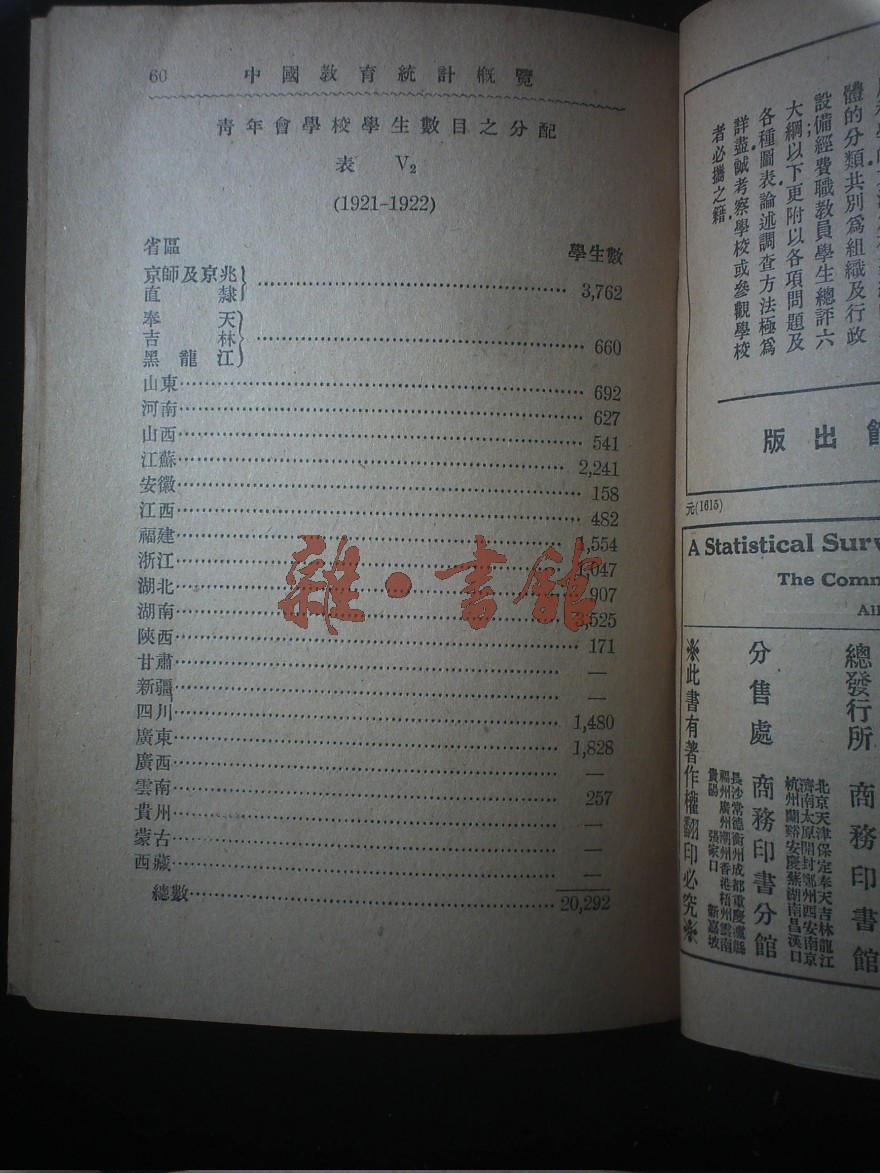 60 中國教育統計概覽
靑年會學校學生數目之分配
表 V₂
(1921-1922)
省區 學生數
京師及京兆
直隸 3,762
奉天
吉林
黑龍江 660
山東 692
河南 627
山西 541
江蘇 2,241
安徽 158
江西 482
福建 1,554
浙江
湖北 907
湖南
陝西 171
甘肅 —
新疆 —
四川 1,480
廣東 1,828
廣西 —
雲南 257
貴州 —
蒙古 —
西藏 —
總數 20,292
雜·書館
體的分類共別爲組織及行政
設備經費職教員學生總評六
大綱以下更附以各項問題及
各種圖表論述調查方法極爲
詳盡誠考察學校或參觀學校
者必攜之籍
版出館
元(1615)
A Statistical Surv
The Comm
All
總發行所 商務印書館
分售處 商務印書分館
北京天津保定奉天吉林龍江
濟南太原開封鄭州西安南京
杭州蘭谿安慶蕪湖南昌漢口
長沙常德衡州成都重慶瀘縣
福州廣州潮州香港梧州雲南
貴陽 張家口 新嘉坡
※此書有著作權翻印必究※